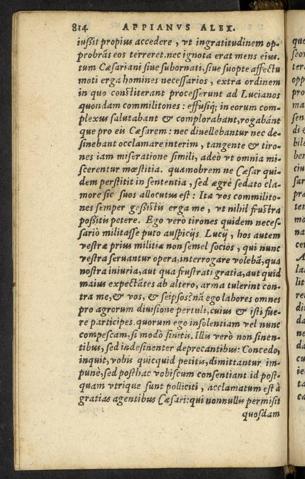 814 APPIANVS ALEX.
iussit propius accedere, vt ingratitudinem op-
probrās eos terreret. nec ignota erat mens eius.
tum Cæsariani siue subornati, siue suopte affectu
moti erga homines necessarios, extra ordinem
in quo constiterant processerunt ad Lucianos
quondam commilitones: effusiq́; in eorum com-
plexus salutabant & complorabant, rogabánt
que pro eis Cæsarem: nec diuellebantur nec de-
sinebant occlamare interim, tangente & tiro-
nes iam miseratione simili, adeò vt omnia mi-
scerentur mœstitia. quamobrem ne Cæsar qui-
dem perstitit in sententia, sed ægrè sedato cla-
more sic suos allocutus est: Ita vos commilito-
nes semper gessistis erga me, vt nihil frustra
possitis petere. Ego verò tirones quidem neces-
sariò militasse puto auspicijs Lucij, hos autem
vestræ prius militiæ non semel socios, qui nunc
vestra seruantur opera, interrogare volebā, qua
nostra iniuria, aut qua frustrati gratia, aut quid
maius expectātes ab altero, arma tulerint con-
tra me, & vos, & seipsos? nā ego labores omnes
pro agrorum diuisione pertuli, cuius & isti fue-
re participes. quorum ego insolentiam vel nunc
compescam, si modò sinitis. Illis verò non sinen-
tibus, sed indesinenter deprecantibus: Concedo,
inquit, vobis quicquid petitis, dimittantur im-
punè, sed posthac vobiscum consentiant. id post-
quam vtrique sunt polliciti, acclamatum est à
gratias agentibus Cæsari: qui nonnullis permisit
quosdam